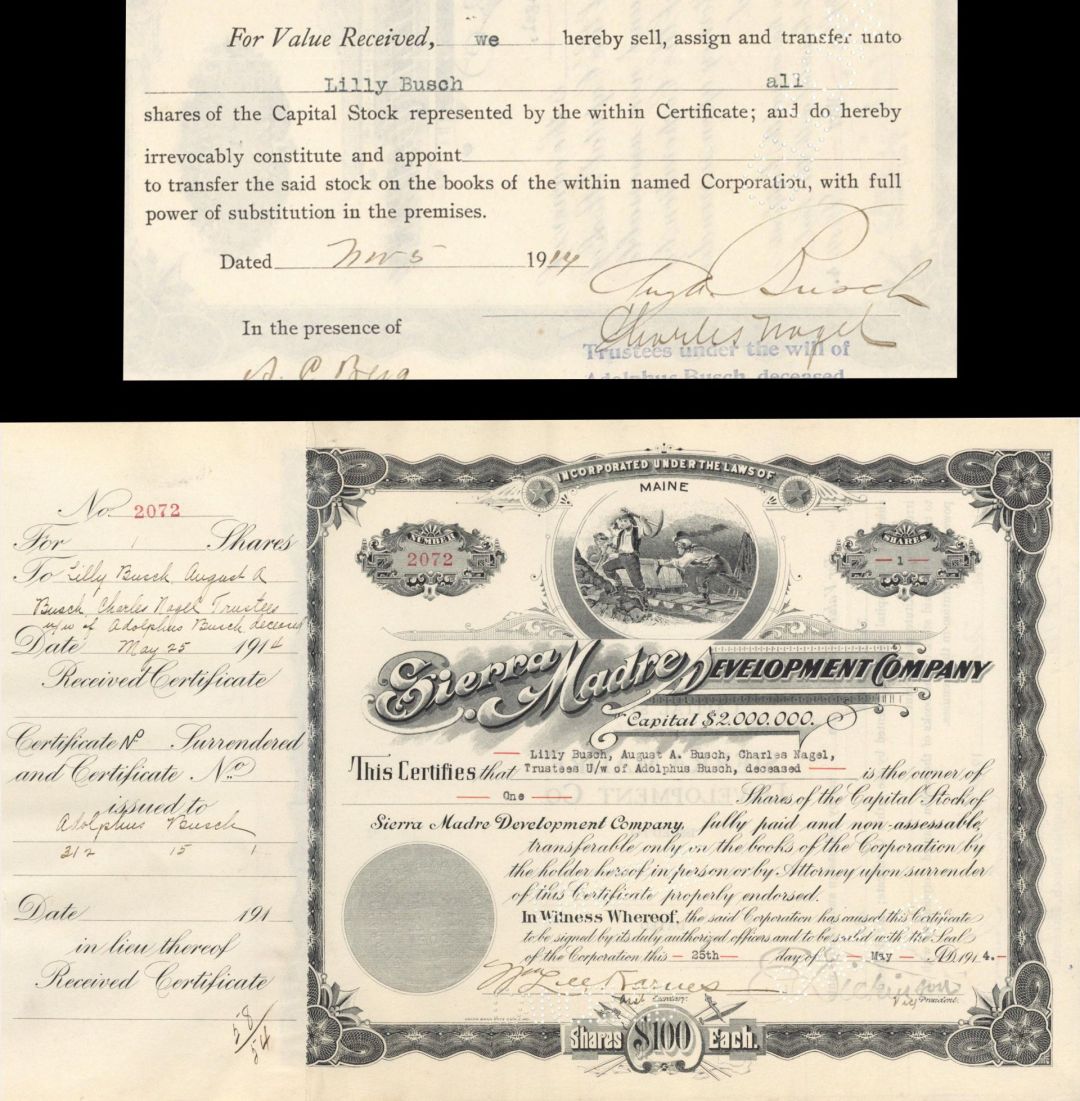 For Value Received, we hereby sell, assign and transfer unto
Lilly Busch all
shares of the Capital Stock represented by the within Certificate; and do hereby
irrevocably constitute and appoint
to transfer the said stock on the books of the within named Corporation, with full
power of substitution in the premises.
Dated Nov 5 1914
August A. Busch
In the presence of
Charles Nagel
Trustees under the will of
A. C. Berg
Adolphus Busch, deceased
No. 2072
For 1 Shares
To Lilly Busch August A
Busch Charles Nagel Trustees
u/w of Adolphus Busch deceased
Date May 25 1914
Received Certificate
Certificate No Surrendered
and Certificate No.
issued to
Adolphus Busch
212 15 1
Date 191
in lieu thereof
Received Certificate
58/54
INCORPORATED UNDER THE LAWS OF
MAINE
NUMBER
2072
SHARES
1
Sierra Madre DEVELOPMENT COMPANY
Capital $2.000.000.
Lilly Busch, August A. Busch, Charles Nagel,
This Certifies that Trustees U/w of Adolphus Busch, deceased is the owner of
One Shares of the Capital Stock of
Sierra Madre Development Company, fully paid and non-assessable,
transferable only on the books of the Corporation by
the holder hereof in person or by Attorney upon surrender
of this Certificate properly endorsed.
In Witness Whereof, the said Corporation has caused this Certificate
to be signed by its duly authorized officers and to be sealed with the Seal
of the Corporation this 25th day of May A.D. 1914.
Wm Lee Karnes
Asst Secretary.
Dickinson
Vice President.
Shares $100 Each.